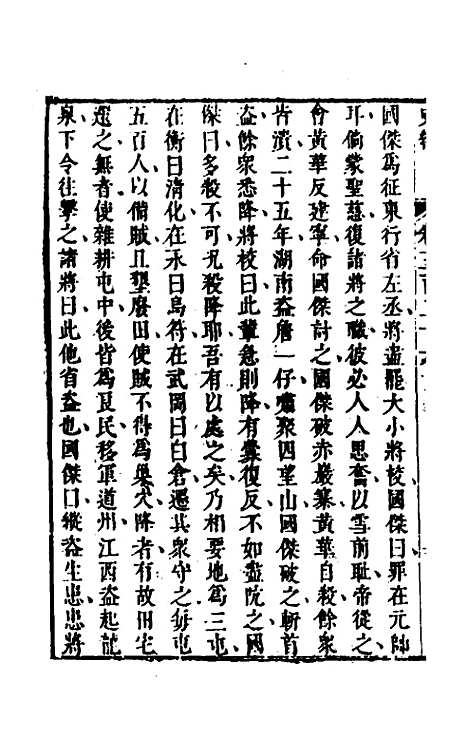 國傑爲征東行省左丞將盡罷大小將校國傑曰罪在元帥
耳倘蒙聖慈復諸將之職彼必人人思奮以雪前耻帝從之
會黃華反建寧命國傑討之國傑破赤巖寨黃華自殺餘衆
皆潰二十五年湖南盗詹一仔嘯聚四望山國傑破之斬首
盗餘衆悉降將校曰此輩急則降有釁復反不如盡阬之國
傑曰多殺不可況殺降耶吾有以處之矣乃相要地爲三屯
在衡曰清化在永曰烏符在武岡曰白倉遷其衆守之每屯
五百人以備賊且墾廢田使賊不得爲巢穴降者有故田宅
還之無者使雜耕屯中後皆爲良民移軍道州江西盗起龍
泉下令往擊之諸將曰此他省盗也國傑曰縱盗生患患將